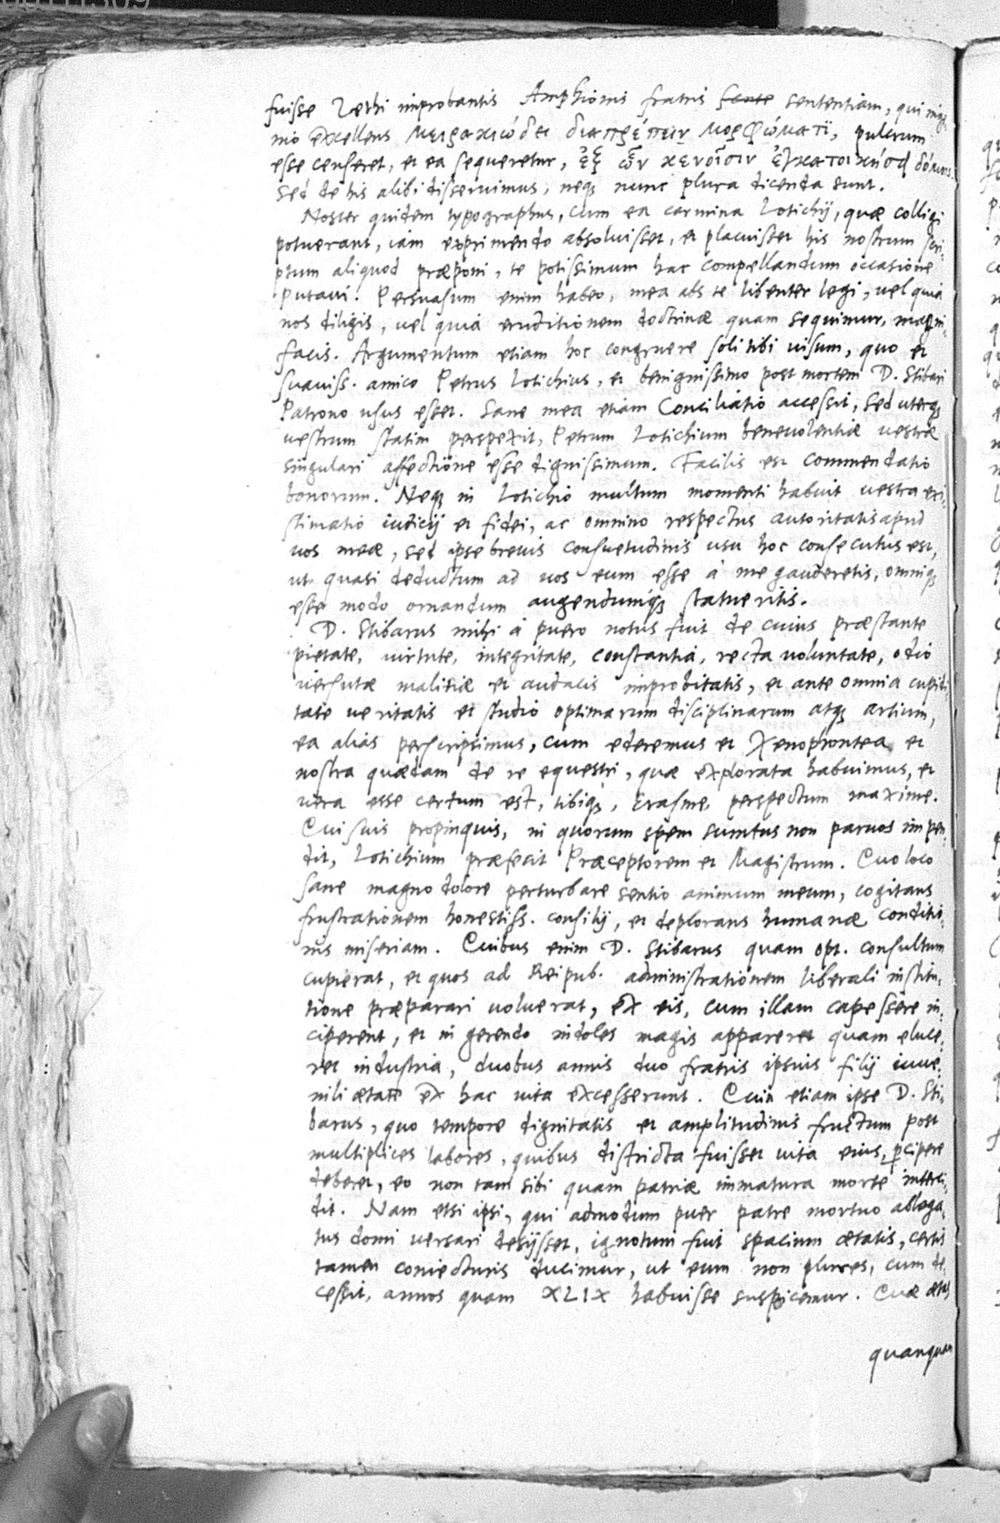 fuisse Zethi improbantis Amphionis fratris sententiam, qui
nio excellens μειρακιώδει διαπρέπειν μορφώματι, pulcrum
esse censeret, et ea sequeretur, ἐξ ὧν κενοῖσιν
Sed de his alibi disseruimus, neq; nunc plura dicenda sunt.
Noster quidem typographus, cum ea carmina Lotichij, quæ colligi
potuerant, iam exprimendo absolvisset, et placuisset his nostrum scri,
ptum aliquod præponi, te potissimum hac compellandum occasione
putavi. Persuasum enim habeo, mea abs te libenter legi, vel quia
nos diligis, vel quia eruditionem doctrinæ quam sequimur, magni,
facis. Argumentum etiam hoc congruere soli tibi visum, quo et
suaviss. amico Petrus Lotichius, et benignissimo post mortem D. Stibari
Patrono usus esset. Sane mea etiam Conciliatio accessit, sed uterq;
vestrum statim perspexit, Petrum Lotichium benevolentiæ vestræ
singulari affectione esse dignissimum. Facilis est commendatio
bonorum. Neq; in Lotichio multum momenti habuit vestra exi,
stimatio iudicij et fidei, ac omnino respectus autoritatis apud
vos meæ, sed ipse brevis consuetudinis usu hoc consecutus est,
ut quasi deductum ad vos eum esse à me gauderetis, omniq;
esse modo ornandum augendumq; statueritis.
D. Stibarus mihi à puero notus fuit de cuius præstante
pietate, virtute, integritate, constantia, recta voluntate, odio
versutæ malitiæ et audacis improbitatis, et ante omnia cupidi
tate veritatis et studio optimarum disciplinarum atq; artium,
ea alias perscripsimus, cum ederemus et Xenophontea, et
nostra quædam de re equestri, quæ explorata habuimus, et
vera esse certum est, tibiq;, Erasme, perspectum maxime.
Cui suis propinquis, in quorum spem sumtus non parvos impen,
dit, Lotichium præfecit Præceptorem et Magistrum. Quo loco
sane magno dolore perturbare sentio animum meum, cogitans
frustrationem honestiss. consilij, et deplorans humanæ conditio,
nis miseriam. Quibus enim D. Stibarus quam opt. consultum
cupierat, et quos ad Reipub. administrationem liberali institu,
tione præparari voluerat, ex eis, cum illam capessere in,
ciperent, et in gerendo indoles magis appareret quam eluce,
ret industria, duobus annis duo fratris ipsius filij iuve,
nili ætate ex hac vita excesserunt. Quin etiam ipse D. Sti,
barus, quo tempore dignitatis et amplitudinis fructum post
multiplices labores, quibus districta fuisset vita eius, percipere
deberet, eo non tam sibi quam patriæ immatura morte interci,
dit. Nam etsi ipsi, qui admodum puer patre mortuo ablega,
tus domi versari desijsset, ignotum fuit spacium ætatis, certis
tamen coniecturis ducimur, ut eum non plures, cum de,
cessit, annos quam XLIX habuisse suspicemur. Quæ ætas
quanquam